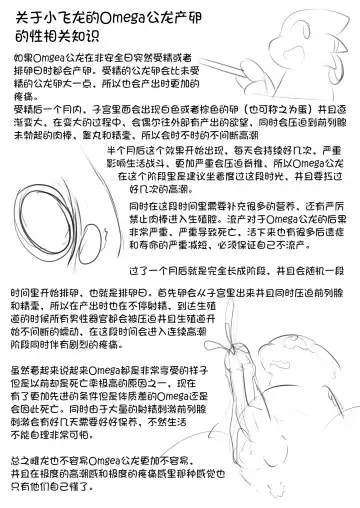 关于小飞龙的Omega公龙产卵
的性相关知识
如果Omgea公龙在非安全日突然受精或者
排卵日时都会产卵。受精的公龙卵会比未受
精的公龙卵大一点，所以也会产出时更加的
疼痛。
受精后一个月内，子宫里面会出现白色或者棕色的卵（也可称之为蛋）并且逐
渐变大，在变大的过程中，会偶尔往外部有产出的欲望，同时会压迫到前列腺
未勃起的肉棒，睾丸和精囊，所以会时不时的不间断高潮
半个月后这个效果开始出现，每天会持续好几次，严重
影响生活战斗，更加严重会压迫脊椎，所以Omega公龙
在这个阶段里是建议坐着度过这段时光，并且要捂过
好几次的高潮。
同时在这段时间里需要补充很多的营养，还有严厉
禁止肉棒进入生殖腔。流产对于Omega公龙的后果
非常严重，严重导致死亡，活下来也有很多后遗症
和寿命的严重减短，必须保证自己不流产。
过了一个月后就是完全长成阶段，并且会随机一段
时间里开始排卵，也就是排卵日。首先卵会从子宫里出来并且同时压迫前列腺
和精囊，所以在产出时也在不停射精，到达生殖
道的时候所有男性器官都会被压迫并且生殖道开
始不间断的蠕动，在这段时间会进入连续高潮
阶段同时伴有剧烈的疼痛。
虽然看起来说起来Omega都是非常享受的样子
但是以前却是死亡率极高的原因之一，现在
有了更加先进的条件但是体质差的Omega还是
会因此死亡。同时由于大量的射精刺激前列腺
刺激会有好几天需要好好保养，不然生活
不能自理非常可怕。
总之雌龙也不容易Omgea公龙更加不容易，
并且在极度的高潮感和极度的疼痛感里那种感觉也
只有他们自己懂了。